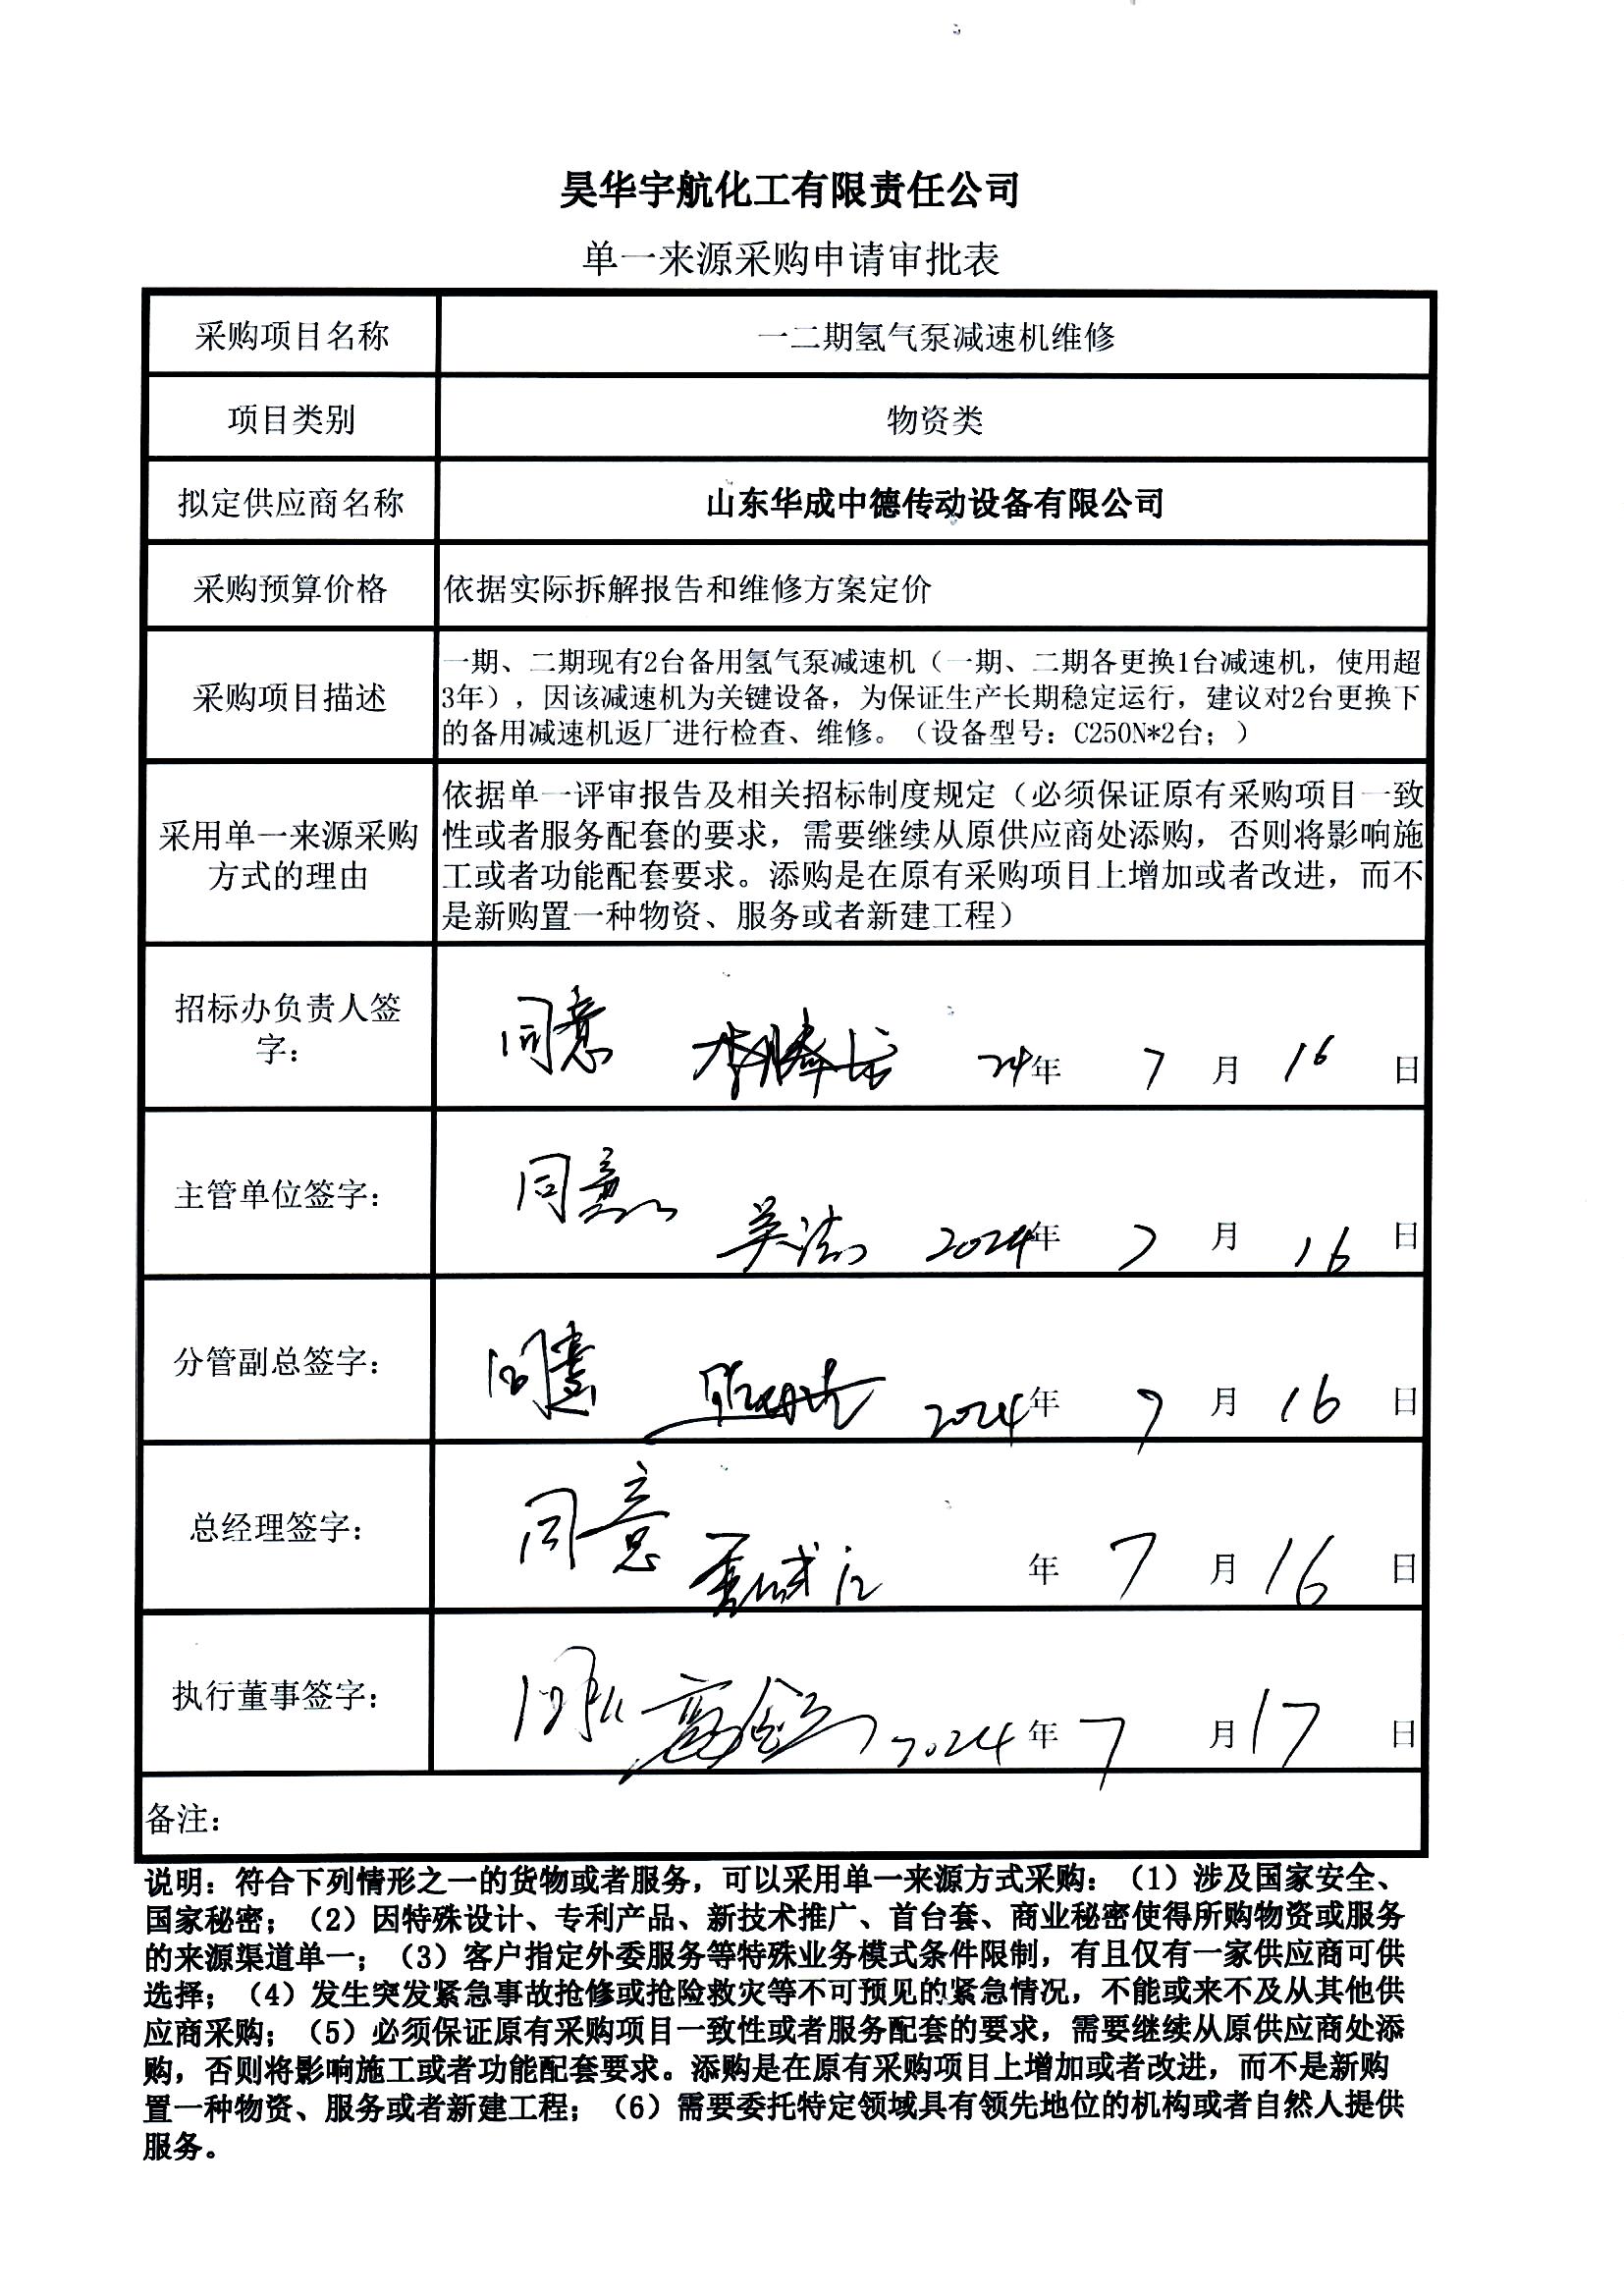 昊华宇航化工有限责任公司
单一来源采购申请审批表
采购项目名称
一二期氢气泵减速机维修
项目类别
物资类
拟定供应商名称
山东华成中德传动设备有限公司
采购预算价格
依据实际拆解报告和维修方案定价
采购项目描述
一期、二期现有2台备用氢气泵减速机（一期、二期各更换1台减速机，使用超
3年），因该减速机为关键设备，为保证生产长期稳定运行，建议对2台更换下
的备用减速机返厂进行检查、维修。（设备型号：C250N*2台；）
采用单一来源采购
方式的理由
依据单一评审报告及相关招标制度规定（必须保证原有采购项目一致
性或者服务配套的要求，需要继续从原供应商处添购，否则将影响施
工或者功能配套要求。添购是在原有采购项目上增加或者改进，而不
是新购置一种物资、服务或者新建工程）
招标办负责人签
字：
同意 24年 7 月 16 日
主管单位签字：
同意 2024年 7 月 16 日
分管副总签字：
同意 2024年 7 月 16 日
总经理签字：
同意 年 7 月 16 日
执行董事签字：
2024年 7 月 17 日
备注：
说明：符合下列情形之一的货物或者服务，可以采用单一来源方式采购：（1）涉及国家安全、
国家秘密；（2）因特殊设计、专利产品、新技术推广、首台套、商业秘密使得所购物资或服务
的来源渠道单一；（3）客户指定外委服务等特殊业务模式条件限制，有且仅有一家供应商可供
选择；（4）发生突发紧急事故抢修或抢险救灾等不可预见的紧急情况，不能或来不及从其他供
应商采购；（5）必须保证原有采购项目一致性或者服务配套的要求，需要继续从原供应商处添
购，否则将影响施工或者功能配套要求。添购是在原有采购项目上增加或者改进，而不是新购
置一种物资、服务或者新建工程；（6）需要委托特定领域具有领先地位的机构或者自然人提供
服务。